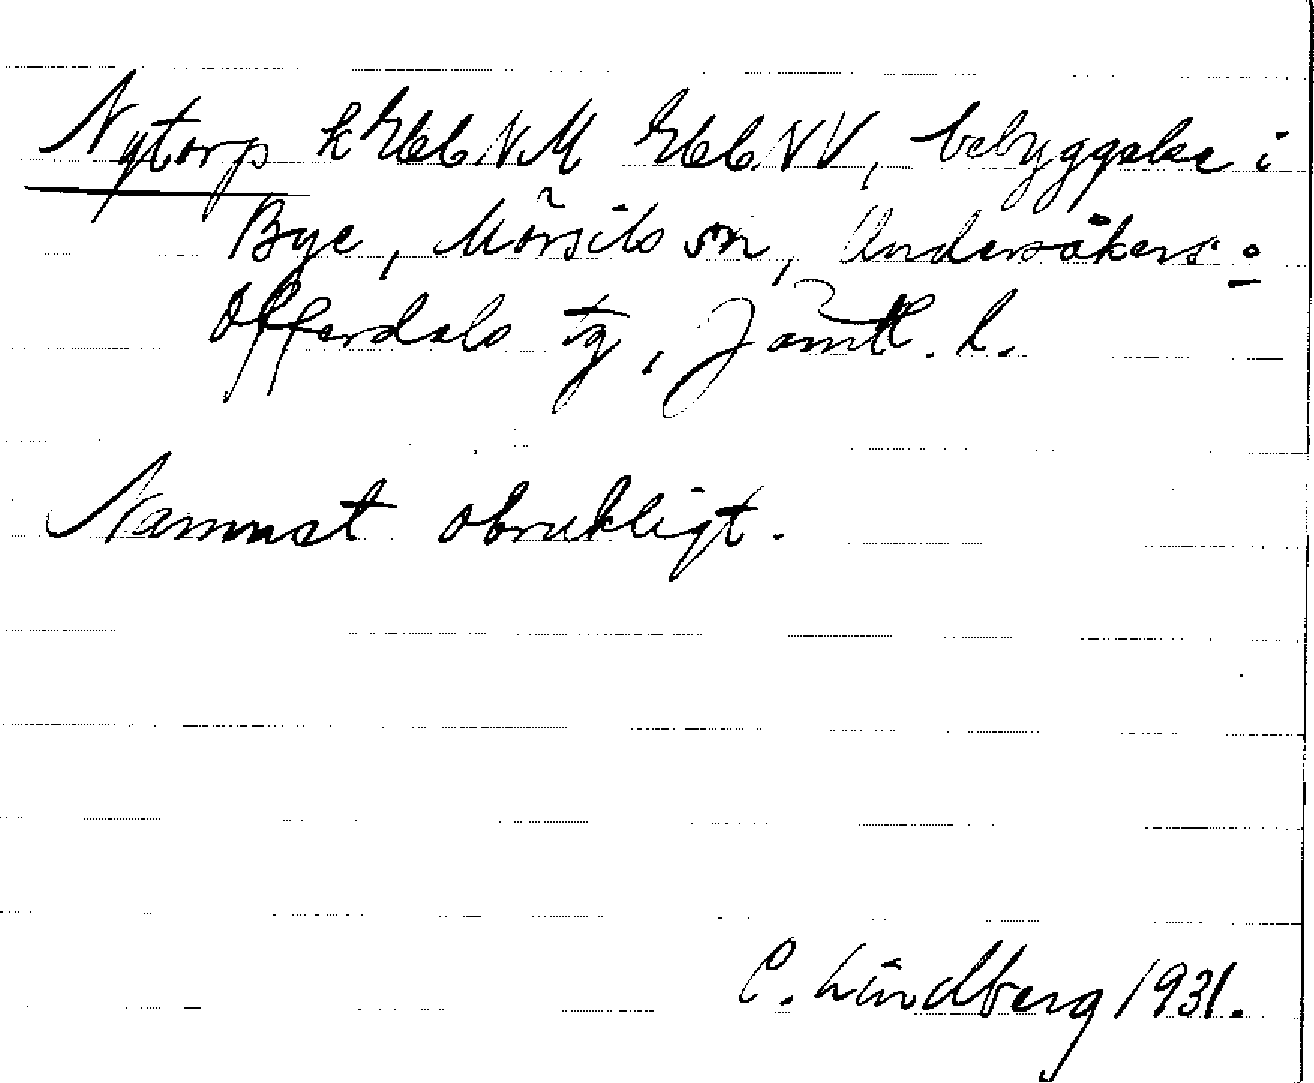 Nytorp k Ebl NM Ebl NV, bebyggelse i
Bye, Mörsils sn, Undersåkers o
Offerdals tg, Jämtl. l.
Namnet obrukligt.
C. Lindberg 1931.